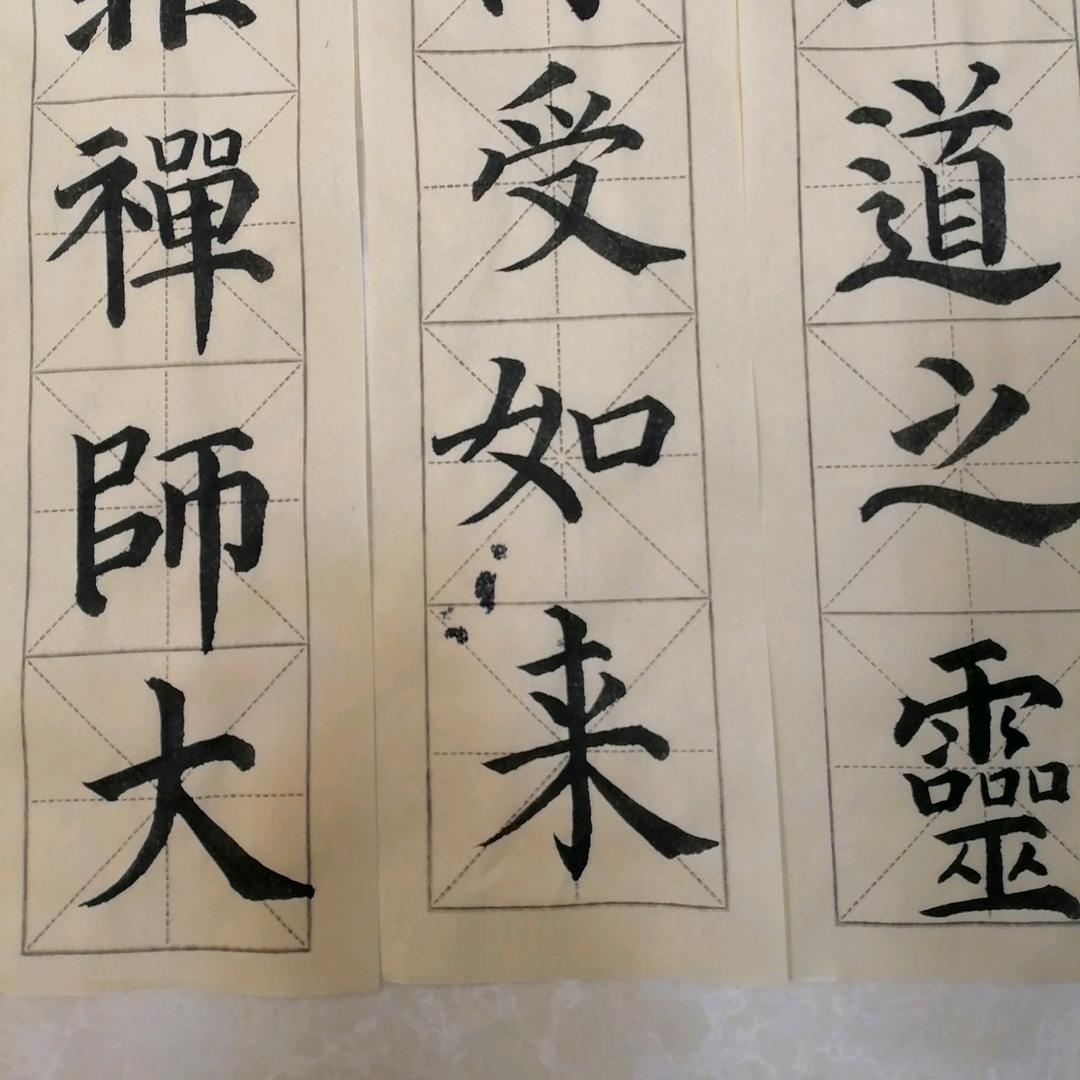 道之靈
受如来
禪師大